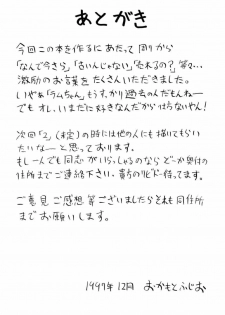 あとがき
今回この本を作るにあたって周りから
「なんで今さら」「古いんじゃない」「売れるの?」等々…
激励のお言葉をたくさんいただきました。
いやぁ「ラムちゃん」もうすっかり過去のんだもんねー
でもオレ、いまだに好きなんだから仕方ないやん!
次回「2」(未定)の時には他の人にも描いてもらい
たいなーと思っております。
もし一人でも同志がいらっしゃるのなら どーか奥付の
住所までご連絡下さい、貴方のリビドー待ってます。
ご意見 ご感想 等ございましたらそれも同住所
までお願いします。
1997年12月 おかもとふじお